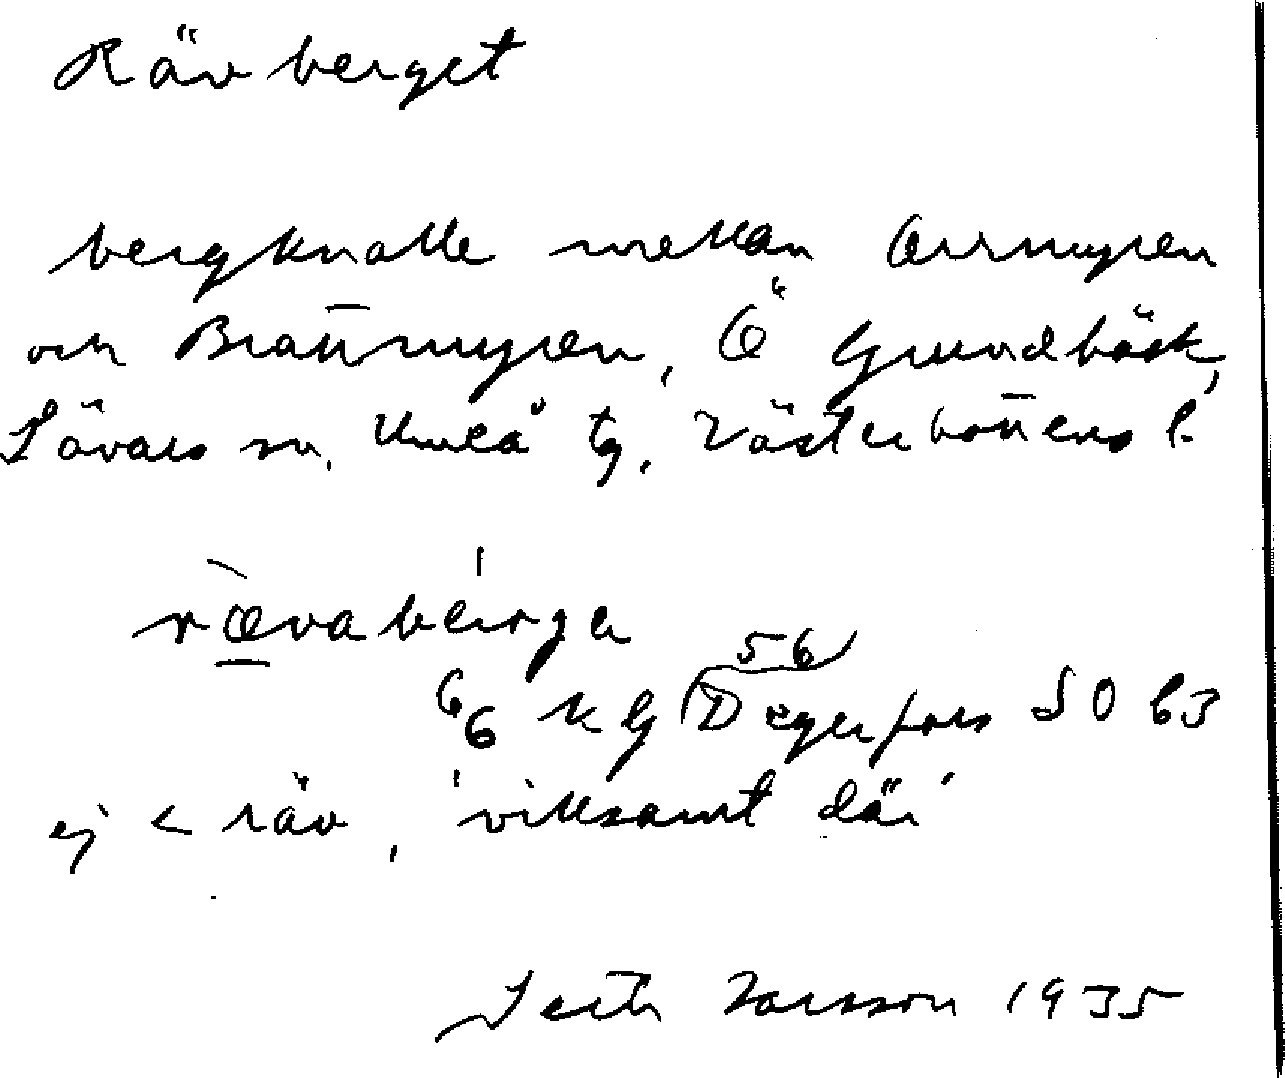 Rävberget
bergknalle mellan Orrmyren
och Bran̅myren, Ö Grundbäck,
Sävars sn, Umeå tg, Västerbon̅ens l.
rævabærge
56
66 kg Degerfors SO 63
ej < räv, 'villsamt där'
Seth Larsson 1935